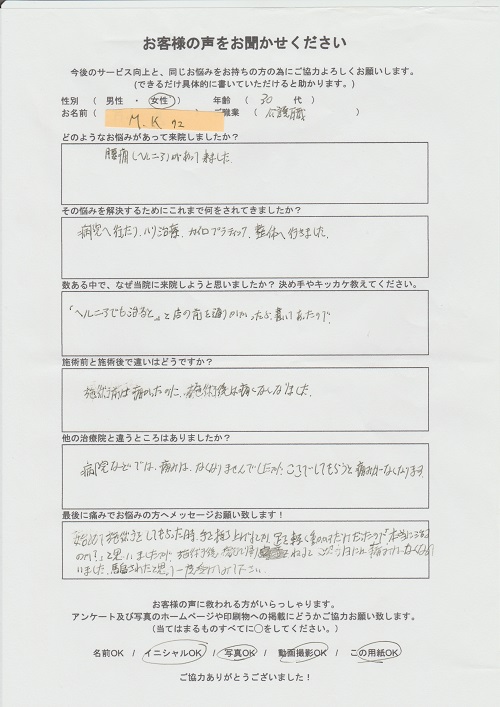 お客様の声をお聞かせください
今後のサービス向上と、同じお悩みをお持ちの方の為にご協力よろしくお願いします。
(できるだけ具体的に書いていただけると助かります。)
性別 ( 男性 ・ 女性 ) 年齢 ( 30 代 )
お名前 M.K ご職業 ( 介護職 )
どのようなお悩みがあって来院しましたか?
腰痛(ヘルニア)があって来ました.
その悩みを解決するためにこれまで何をされてきましたか?
病院へ行ったり、ハリ治療、カイロプラティック、整体へ行きました。
数ある中で、なぜ当院に来院しようと思いましたか? 決め手やキッカケ教えてください。
「ヘルニアでも治ると」と店の前を通りかかったら、書いてあったので.
施術前と施術後で違いはどうですか?
施術前は痛かったのに、施術後は痛くなくなりました.
他の治療院と違うところはありましたか?
病院などでは、痛みは、なくなりませんでしたが、ここでしてもらうと痛みがなくなります
最後に痛みでお悩みの方へメッセージお願い致します!
始めて施術をしてもらった時、手を
のか?」と思いましたが 施術後
いました。騙されたと思う一度受けて下さい.
お客様の声に救われる方がいらっしゃります。
アンケート及び写真のホームページや印刷物への掲載にどうかご協力お願い致します。
(当てはまるものすべてに○をしてください。)
名前OK / イニシャルOK / 写真OK / 動画撮影OK / この用紙OK
ご協力ありがとうございました!